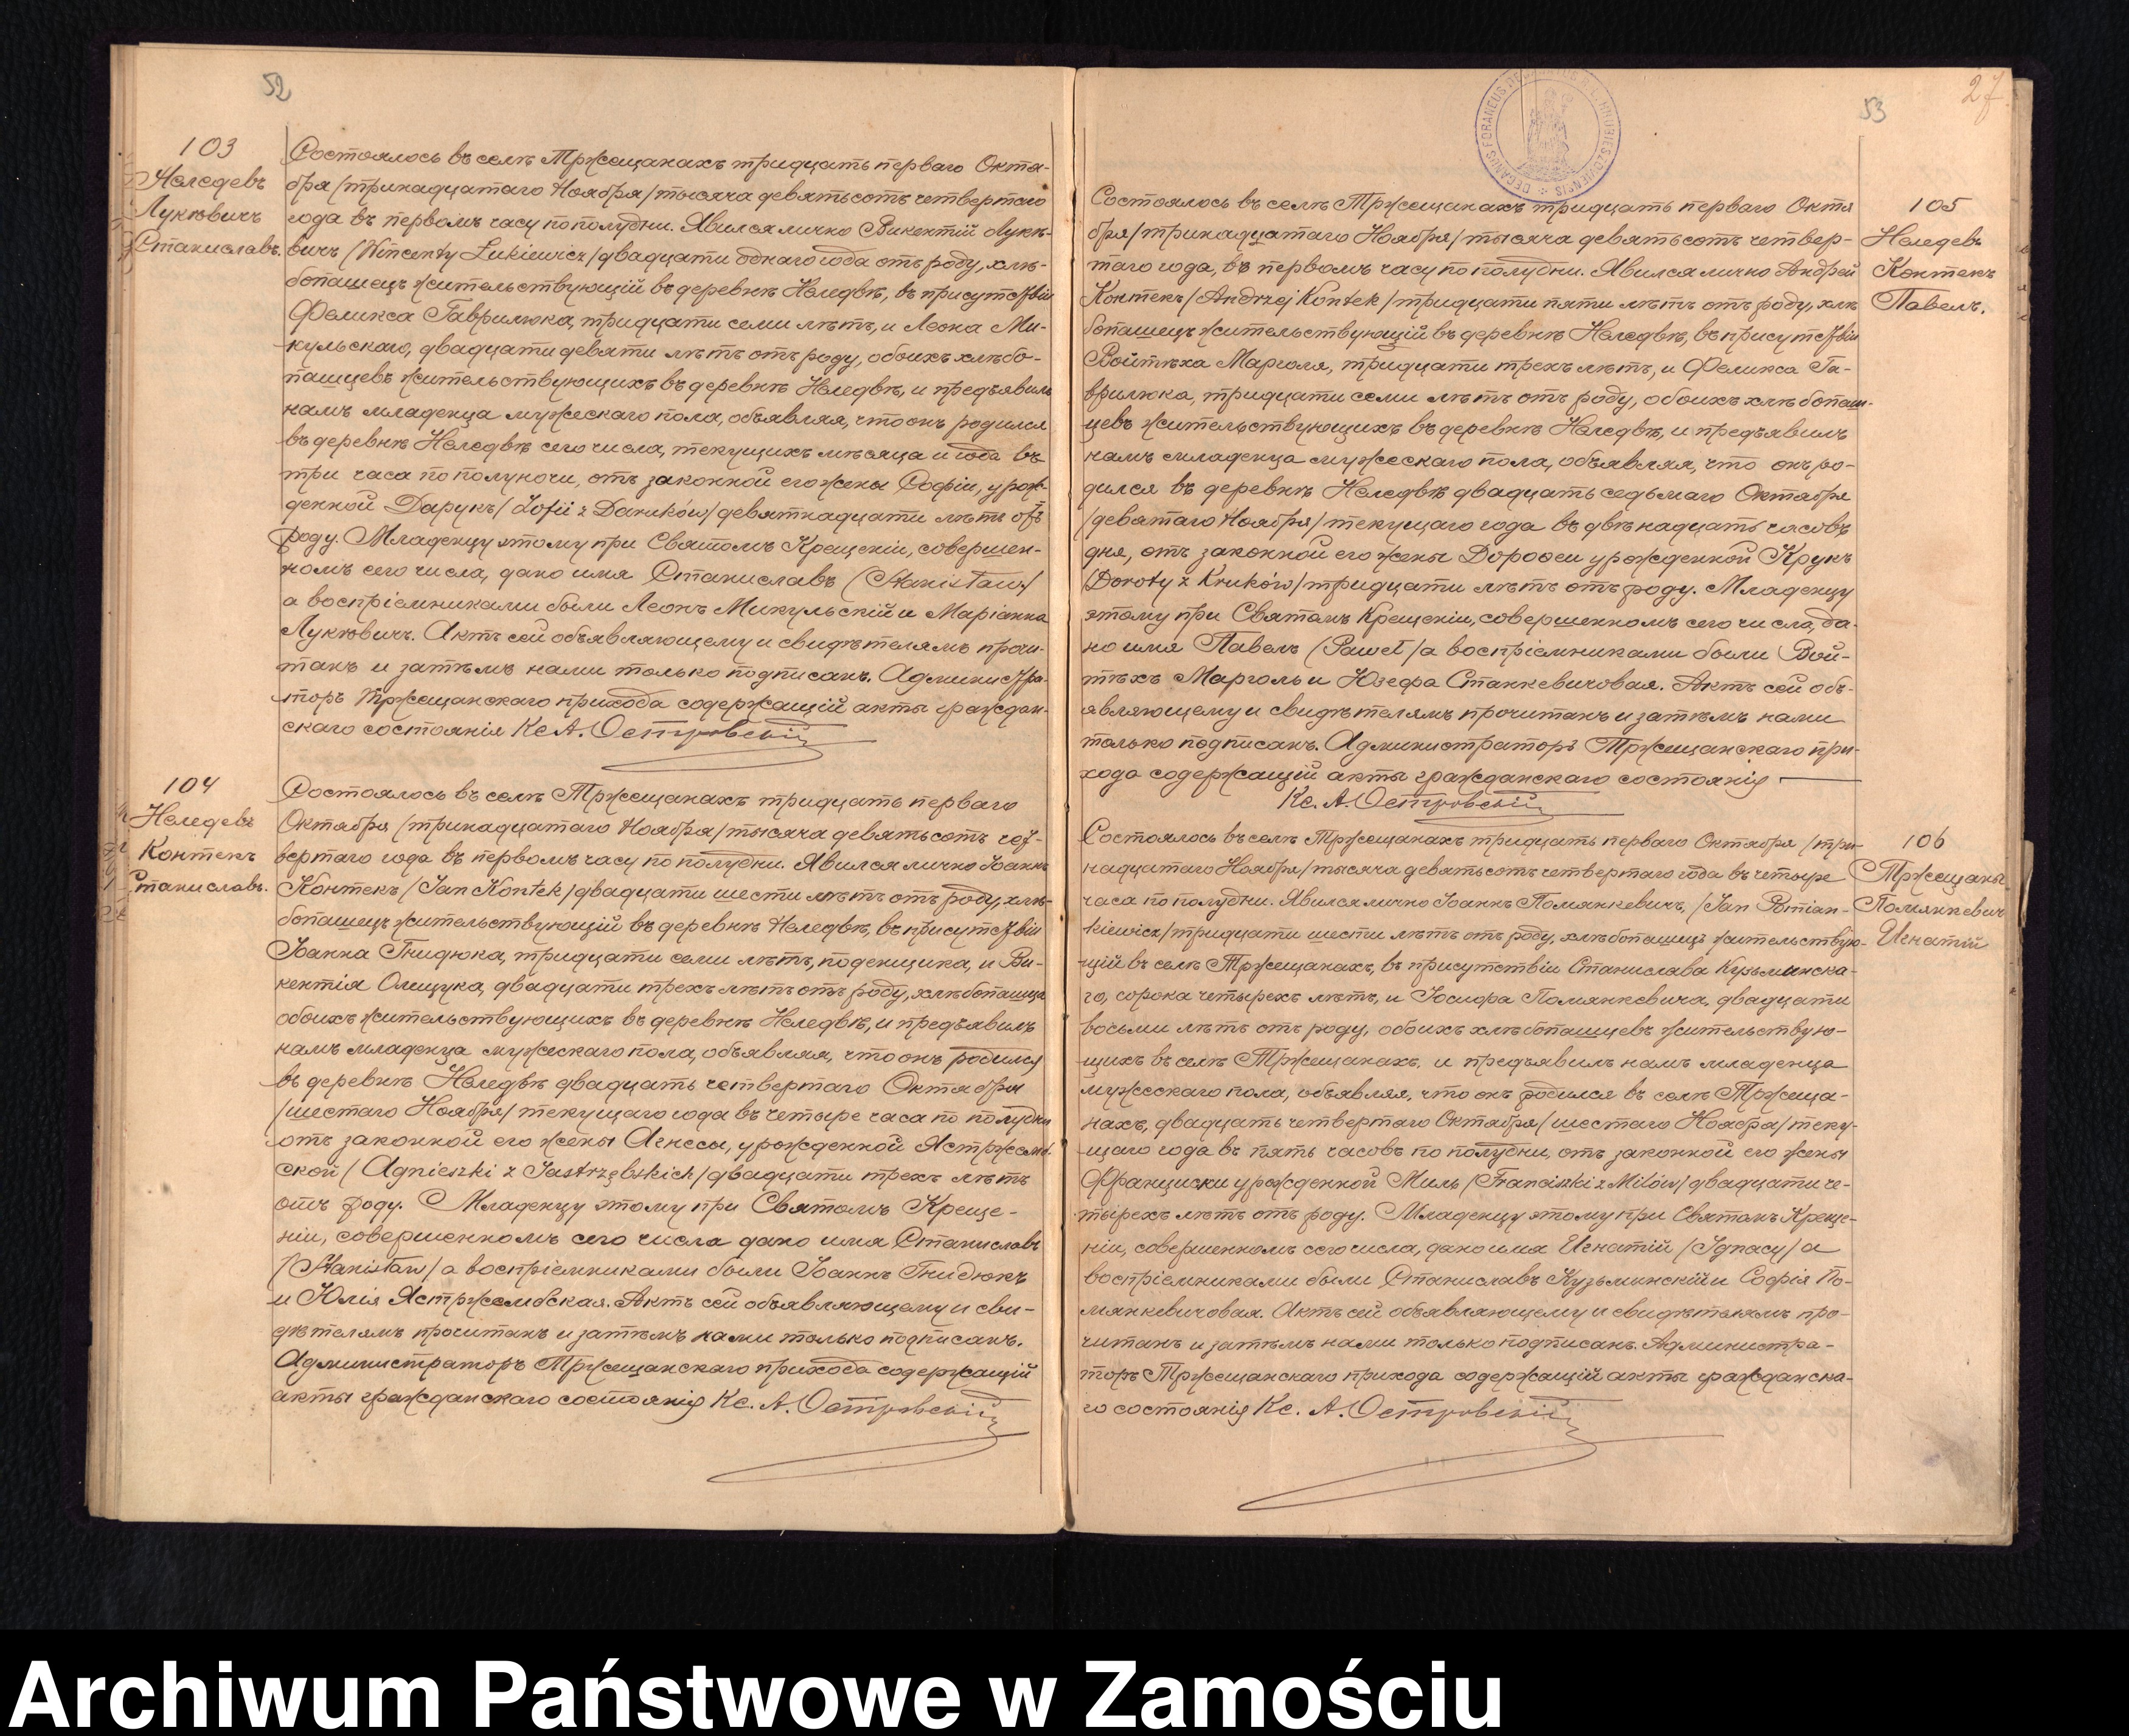 52
103
Неледевъ
Лукѣвичъ
Станиславъ.
Состоялось въ селѣ Тржещанахъ тридцать перваго Октя-
бря /тринадцатаго Ноября/ тысяча девятьсотъ четвертаго
года въ первомъ часу пополудни. Явился лично Викентій Лукѣ-
вичъ /Wincenty Łukiewicz/ двадцати однаго года отъ роду, хлѣ-
бопашецъ жительствующій въ деревнѣ Неледвѣ, въ присутствіи
Феликса Гаврилюка, тридцати семи лѣтъ, и Леона Ми-
кульскаго, двадцати девяти лѣтъ отъ роду, обоихъ хлѣбо-
пашцевъ жительствующихъ въ деревнѣ Неледвѣ, и предъявилъ
намъ младенца мужескаго пола, объявляя, что онъ родился
въ деревнѣ Неледвѣ сего числа, текущихъ мѣсяца и года въ
три часа по полуночи, отъ законной его жены Софіи, урож-
денной Дарукъ /Zofii z Daruków/ девятнадцати лѣтъ отъ
роду. Младенцу этому при Святомъ Крещеніи, совершен-
номъ сего числа, дано имя Станиславъ /Stanisław/
а воспріемниками были Леонъ Микульскій и Маріанна
Лукѣвичъ. Актъ сей объявляющему и свидѣтелямъ прочи-
танъ и затѣмъ нами только подписанъ. Администра-
торъ Тржещанскаго прихода содержащій акты граждан-
скаго состоянія Кс. А. Островскій
104
Неледевъ
Контекъ
Станиславъ.
Состоялось въ селѣ Тржещанахъ тридцать перваго
Октября /тринадцатаго Ноября/ тысяча девятьсотъ чет-
вертаго года въ первомъ часу по полудни. Явился лично Іоаннъ
Контекъ /Jan Kontek/ двадцати шести лѣтъ отъ роду, хлѣ-
бопашецъ жительствующій въ деревнѣ Неледвѣ, въ присутствіи
Іоанна Гнидюка, тридцати семи лѣтъ, поденщика, и Ви-
кентія Олищука, двадцати трехъ лѣтъ отъ роду, хлѣбопашца
обоихъ жительствующихъ въ деревнѣ Неледвѣ, и предъявилъ
намъ младенца мужескаго пола, объявляя, что онъ родился
въ деревнѣ Неледвѣ двадцать четвертаго Октября
/шестаго Ноября/ текущаго года въ четыре часа по полудни
отъ законной его жены Агнессы, урожденной Ястржемб-
ской /Agnieszki z Jastrzębskich/ двадцати трехъ лѣтъ
отъ роду. Младенцу этому при Святомъ Креще-
ніи, совершенномъ сего числа дано имя Станиславъ
/Stanisław/ а воспріемниками были Іоаннъ Гнидюкъ
и Юлія Ястржембская. Актъ сей объявляющему и сви-
дѣтелямъ прочитанъ и затѣмъ нами только подписанъ.
Администраторъ Тржещанскаго прихода содержащій
акты гражданскаго состоянія Кс. А. Островскій
27
53
105
Неледевъ
Контекъ
Павелъ.
Состоялось въ селѣ Тржещанахъ тридцать перваго Октя
бря /тринадцатаго Ноября/ тысяча девятьсотъ четвер-
таго года, въ первомъ часу по полудни. Явился лично Андрей
Контекъ /Andrzej Kontek/ тридцати пяти лѣтъ отъ роду, хлѣ
бопашецъ жительствующій въ деревнѣ Неледвѣ, въ присутствіи
Войтѣха Марголя, тридцати трехъ лѣтъ, и Феликса Га-
врилюка, тридцати семи лѣтъ отъ роду, обоихъ хлѣбопаш-
цевъ жительствующихъ въ деревнѣ Неледвѣ, и предъявилъ
намъ младенца мужескаго пола, объявляя, что онъ ро-
дился въ деревнѣ Неледвѣ двадцать седьмаго Октября
/девятаго Ноября/ текущаго года въ двѣнадцать часовъ
дня, отъ законной его жены Дороѳеи урожденной Крукъ
/Doroty z Kruków/ тридцати лѣтъ отъ роду. Младенцу
этому при Святомъ Крещеніи, совершенномъ сего числа, да-
но имя Павелъ /Paweł/ а воспріемниками были Вой-
тѣхъ Марголь и Юзефа Станкевичовая. Актъ сей объ-
являющему и свидѣтелямъ прочитанъ и затѣмъ нами
только подписанъ. Администраторъ Тржещанскаго при-
хода содержащій акты гражданскаго состоянія
Кс. А. Островскій
106
Тржещаны
Помянкевичъ
Игнатій
Состоялось въ селѣ Тржещанахъ тридцать перваго Октября /три-
надцатаго Ноября/ тысяча девятьсотъ четвертаго года въ четыре
часа по полудни. Явился лично Іоаннъ Помянкевичъ /Jan Pomian-
kiewicz/ тридцати шести лѣтъ отъ роду, хлѣбопашецъ жительствую-
щій въ селѣ Тржещанахъ, въ присутствіи Станислава Кузьминска-
го, сорока четырехъ лѣтъ, и Іосифа Помянкевича, двадцати
восьми лѣтъ отъ роду, обоихъ хлѣбопашцевъ жительствую-
щихъ въ селѣ Тржещанахъ, и предъявилъ намъ младенца
мужескаго пола, объявляя, что онъ родился въ селѣ Тржеща-
нахъ, двадцать четвертаго Октября /шестаго Ноября/ теку-
щаго года въ пять часовъ по полудни, отъ законной его жены
Франциски урожденной Миль /Franciszki z Milów/ двадцати че-
тырехъ лѣтъ отъ роду. Младенцу этому при Святомъ Креще-
ніи, совершенномъ сего числа, дано имя Игнатій /Ignacy/ а
воспріемниками были Станиславъ Кузьминскій и Софія По-
мянкевичовая. Актъ сей объявляющему и свидѣтелямъ про-
читанъ и затѣмъ нами только подписанъ. Администра-
торъ Тржещанскаго прихода содержащій акты гражданска-
го состоянія Кс. А. Островскій
Archiwum Państwowe w Zamościu